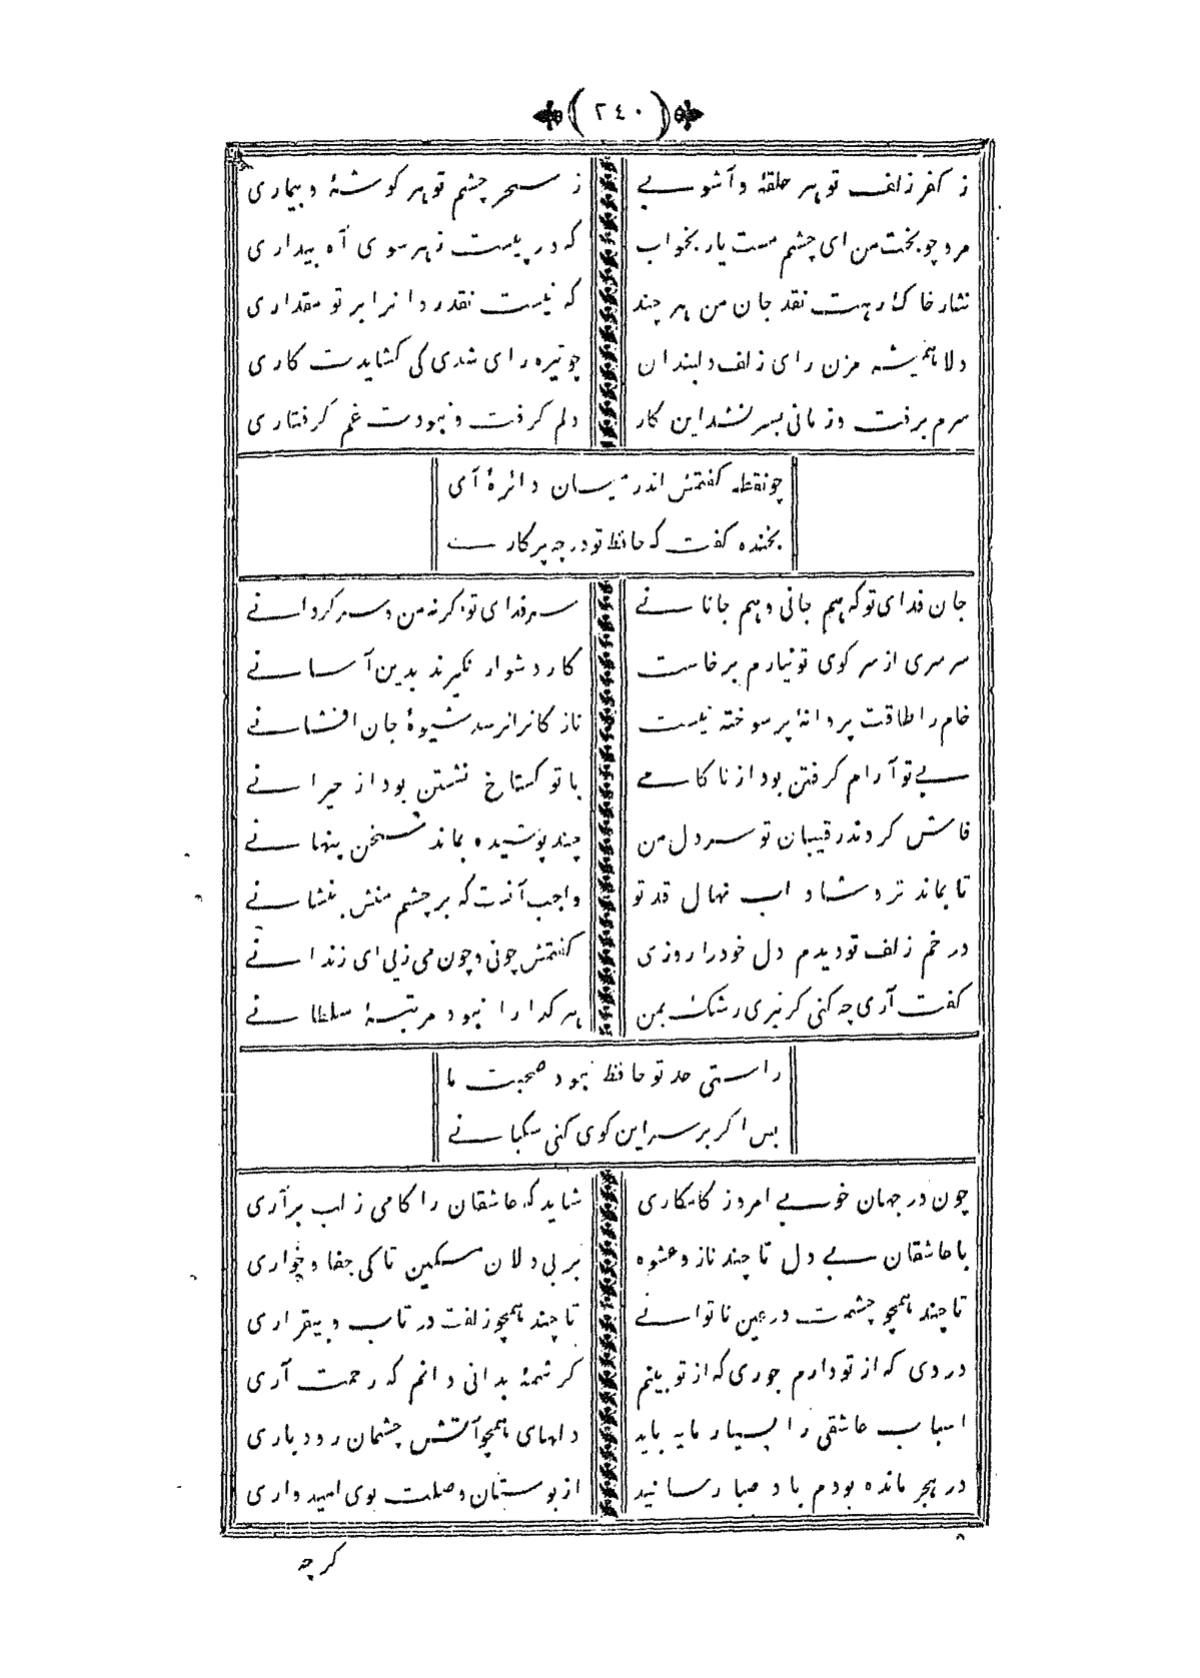 ٢٤٠
ز كفر زلف تو هر حلقهٔ و آشوبے ز سحر چشم تو هر كوشهٔ و بیماری
مرو چو بخت من ای چشم مست یار بخواب كه در پیست ز هر سوی آه بیداری
نثار خاك رهت نقد جان من هر چند كه نیست نقد روانرا بر تو مقداری
دلا همیشه مزن رای زلف دلبندان چو تیره رای شدی كی كشایدت كاری
سرم برفت و زمانی بسر نشد این كار دلم كرفت و نبودت غم كرفتاری
چو نقطه كفتمش اندر میان دائرهٔ آی
بخنده كفت كه حافظ تو در چه پركاری
جان فدای تو كه هم جانی و هم جانانے سر فدای تو كرنه من و سر كردانے
سرسری از سر كوی تو نیارم برخاست كار دشوار نكیرند بدین آسانے
خام را طاقت پروانهٔ پر سوخته نیست نازكانرا نرسد شیوهٔ جان افشانے
بے تو آرام كرفتن بود از ناكامے با تو كستاخ نشستن بود از حیرانے
فاش كردند رقیبان تو سر دل من چند پوشیده بماند سخن پنهانے
تا بماند تر و شاداب نهال قد تو واجب آنست كه بر چشم منش بنشانے
در خم زلف تو دیدم دل خود را روزی كفتمش چونی و چون می زیی ای زندانے
كفت آری چه كنی كر نبری رشك بمن هر كدا را نبود مرتبهٔ سلطانے
راستی حد تو حافظ نبود صحبت ما
بس اكر بر سر این كوی كنی سكبانے
چون در جهان خوبے امروز كامكاری شاید كه عاشقان را كامی ز لب برآری
با عاشقان بے دل تا چند ناز و عشوه بر بی دلان مسكین تا كی جفا و خواری
تا چند همچو چشمت در عین ناتوانے تا چند همچو زلفت در تاب و بیقراری
دردی كه از تو دارم جوری كه از تو بینم كر شمهٔ بدانی دانم كه رحمت آری
اسباب عاشقی را بسیار مایه باید دلهای همچو آتش چشمان رودباری
در هجر مانده بودم باد صبا رسانید از بوستان وصلت بوی امیدواری
كرچه